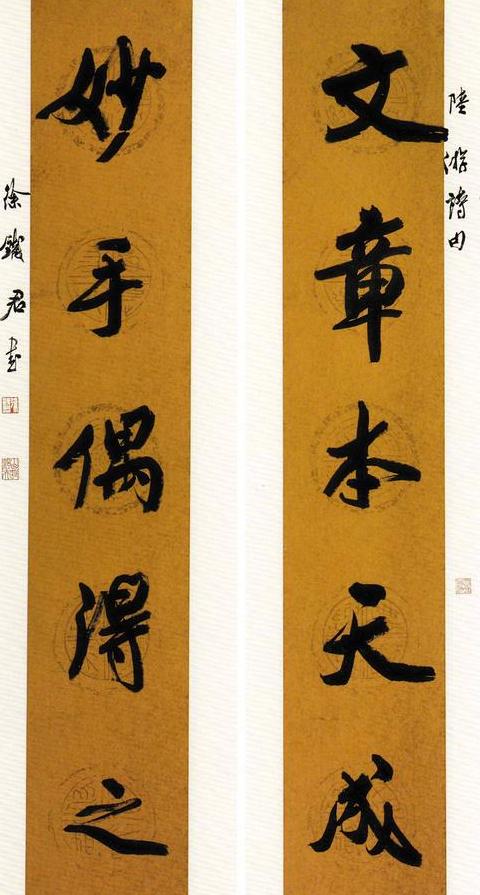 陸游詩句
文章本天成
妙手偶得之
徐鐵君書